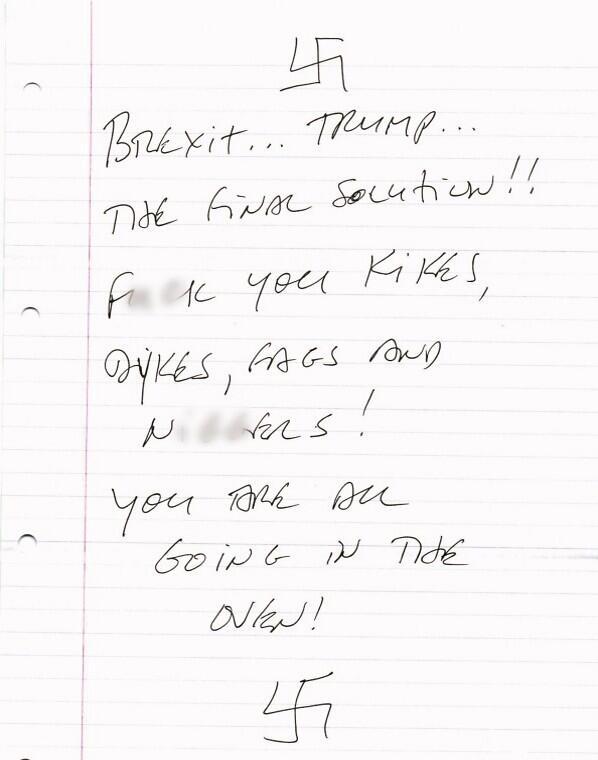 BREXIT... TRUMP...
THE FINAL SOLUTION!!
YOU KIKES,
DYKES, FAGS AND
YOU ARE ALL
GOING IN THE
OVEN!